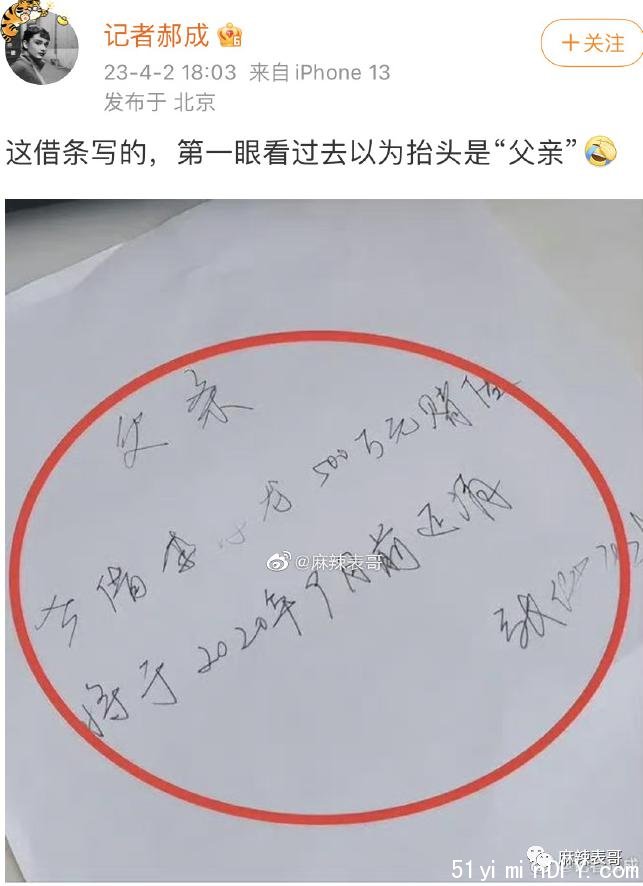 记者郝成
+关注
23-4-2 18:03 来自 iPhone 13
发布于 北京
这借条写的，第一眼看过去以为抬头是“父亲”🤣
欠条
今借李小龙500万元赌债
@麻辣表哥
将于2020年9月前还清
麻辣表哥
51yi minDIY.com